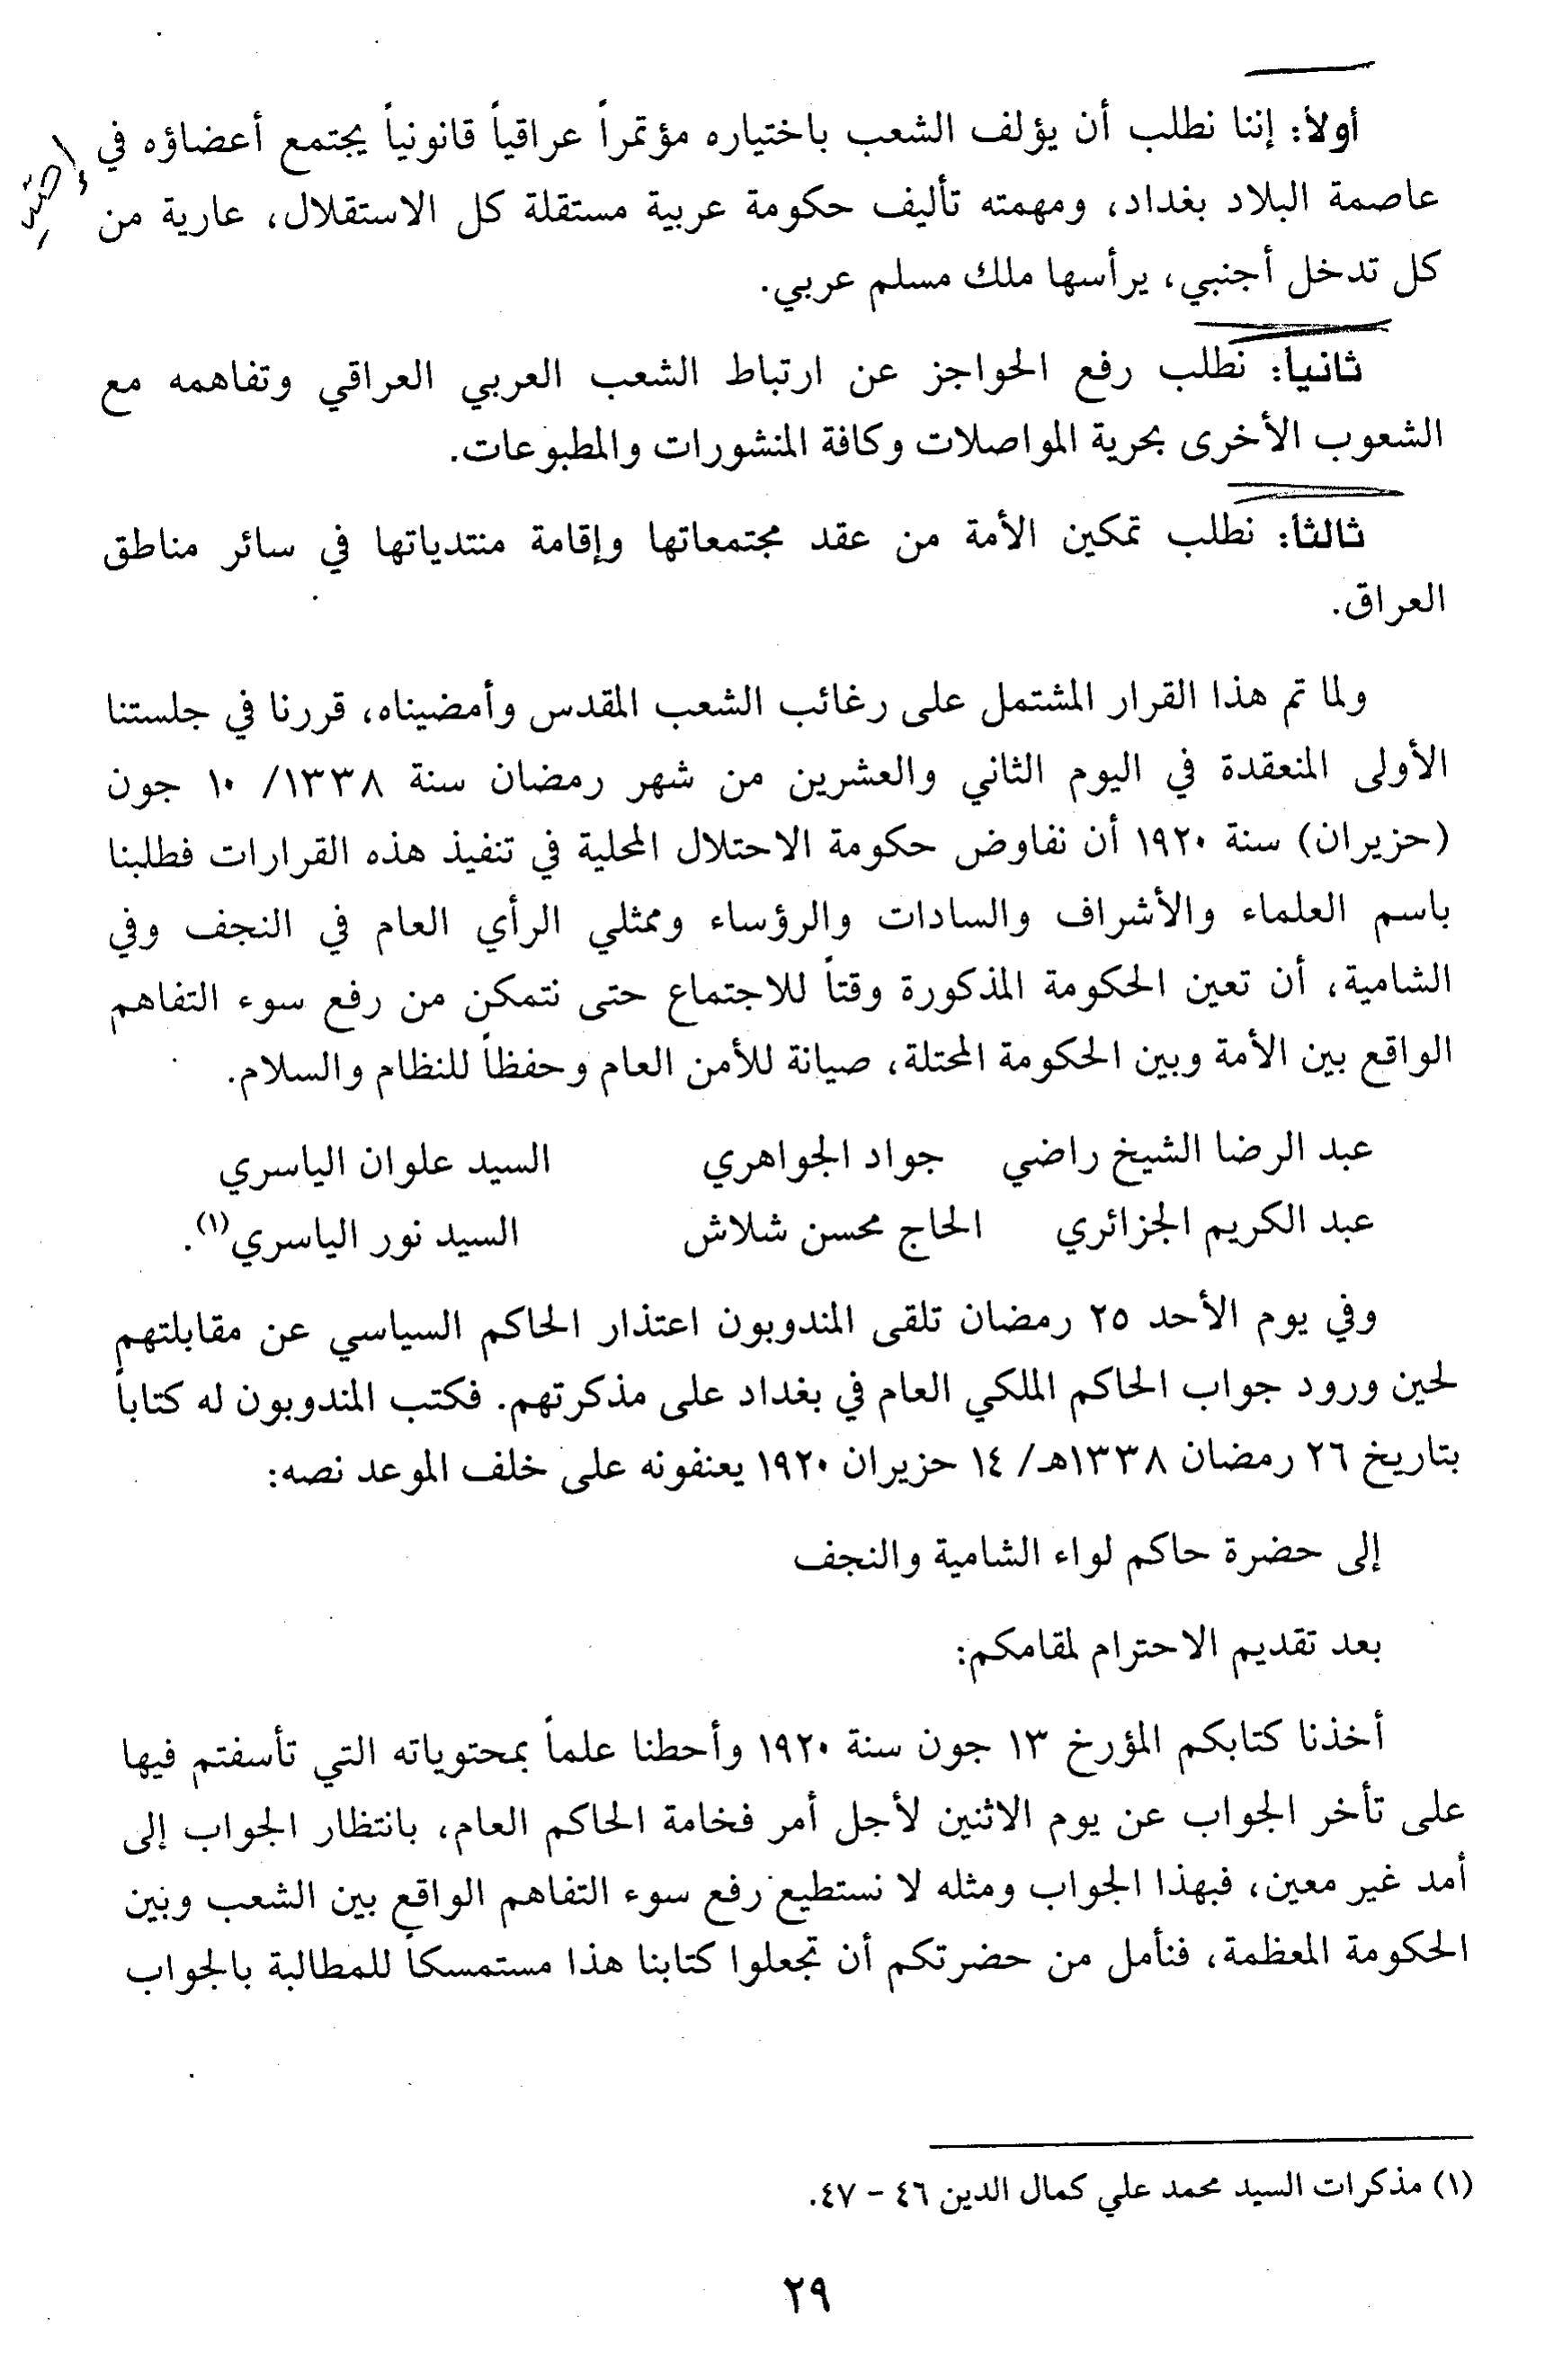 أولاً: إننا نطلب أن يؤلف الشعب باختياره مؤتمراً عراقياً قانونياً يجتمع أعضاؤه في
عاصمة البلاد بغداد، ومهمته تأليف حكومة عربية مستقلة كل الاستقلال، عارية من
كل تدخل أجنبي، يرأسها ملك مسلم عربي.
ثانياً: نطلب رفع الحواجز عن ارتباط الشعب العربي العراقي وتفاهمه مع
الشعوب الأخرى بحرية المواصلات وكافة المنشورات والمطبوعات.
ثالثاً: نطلب تمكين الأمة من عقد مجتمعاتها وإقامة منتدياتها في سائر مناطق
العراق.
ولما تم هذا القرار المشتمل على رغائب الشعب المقدس وأمضيناه، قررنا في جلستنا
الأولى المنعقدة في اليوم الثاني والعشرين من شهر رمضان سنة ١٣٣٨/ ١٠ جون
(حزيران) سنة ١٩٢٠ أن نفاوض حكومة الاحتلال المحلية في تنفيذ هذه القرارات فطلبنا
باسم العلماء والأشراف والسادات والرؤساء وممثلي الرأي العام في النجف وفي
الشامية، أن تعين الحكومة المذكورة وقتاً للاجتماع حتى نتمكن من رفع سوء التفاهم
الواقع بين الأمة وبين الحكومة المحتلة، صيانة للأمن العام وحفظاً للنظام والسلام.
عبد الرضا الشيخ راضي جواد الجواهري السيد علوان الياسري
عبد الكريم الجزائري الحاج محسن شلاش السيد نور الياسري(١).
وفي يوم الأحد ٢٥ رمضان تلقى المندوبون اعتذار الحاكم السياسي عن مقابلتهم
لحين ورود جواب الحاكم الملكي العام في بغداد على مذكرتهم. فكتب المندوبون له كتاباً
بتاريخ ٢٦ رمضان ١٣٣٨هـ/ ١٤ حزيران ١٩٢٠ يعنفونه على خلف الموعد نصه:
إلى حضرة حاكم لواء الشامية والنجف
بعد تقديم الاحترام لمقامكم:
أخذنا كتابكم المؤرخ ١٣ جون سنة ١٩٢٠ وأحطنا علماً بمحتوياته التي تأسفتم فيها
على تأخر الجواب عن يوم الاثنين لأجل أمر فخامة الحاكم العام، بانتظار الجواب إلى
أمد غير معين، فبهذا الجواب ومثله لا نستطيع رفع سوء التفاهم الواقع بين الشعب وبين
الحكومة المعظمة، فنأمل من حضرتكم أن تجعلوا كتابنا هذا مستمسكاً للمطالبة بالجواب
(١) مذكرات السيد محمد علي كمال الدين ٤٦ - ٤٧.
٢٩